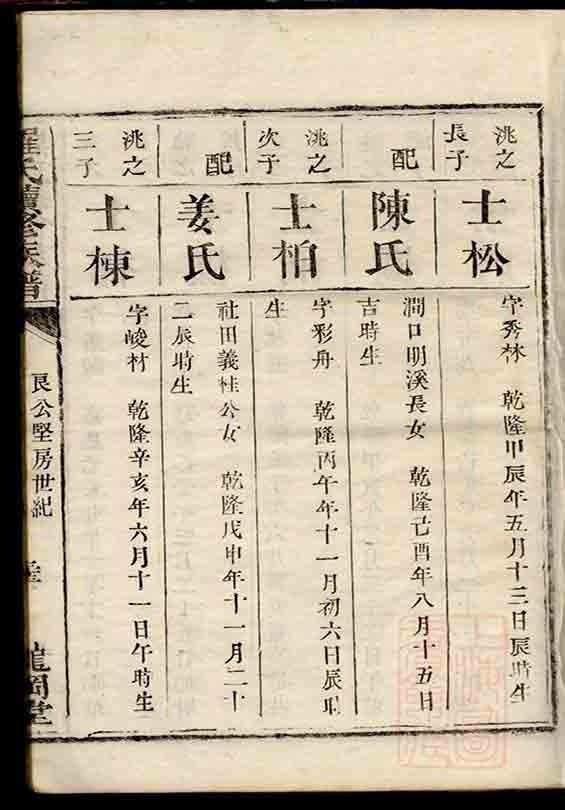 洮之
長子
士松
字秀林 乾隆甲辰年五月十三日辰時生
配
陳氏
澗口明溪長女 乾隆己酉年八月十五日
吉時生
洮之
次子
士柏
字彩舟 乾隆丙午年十一月初六日辰時
生
配
姜氏
社田義桂公女 乾隆戊申年十一月二十
二辰時生
洮之
三子
士棟
字峻材 乾隆辛亥年六月十一日午時生
羅氏續修族譜
艮公堅房世紀
龍岡堂